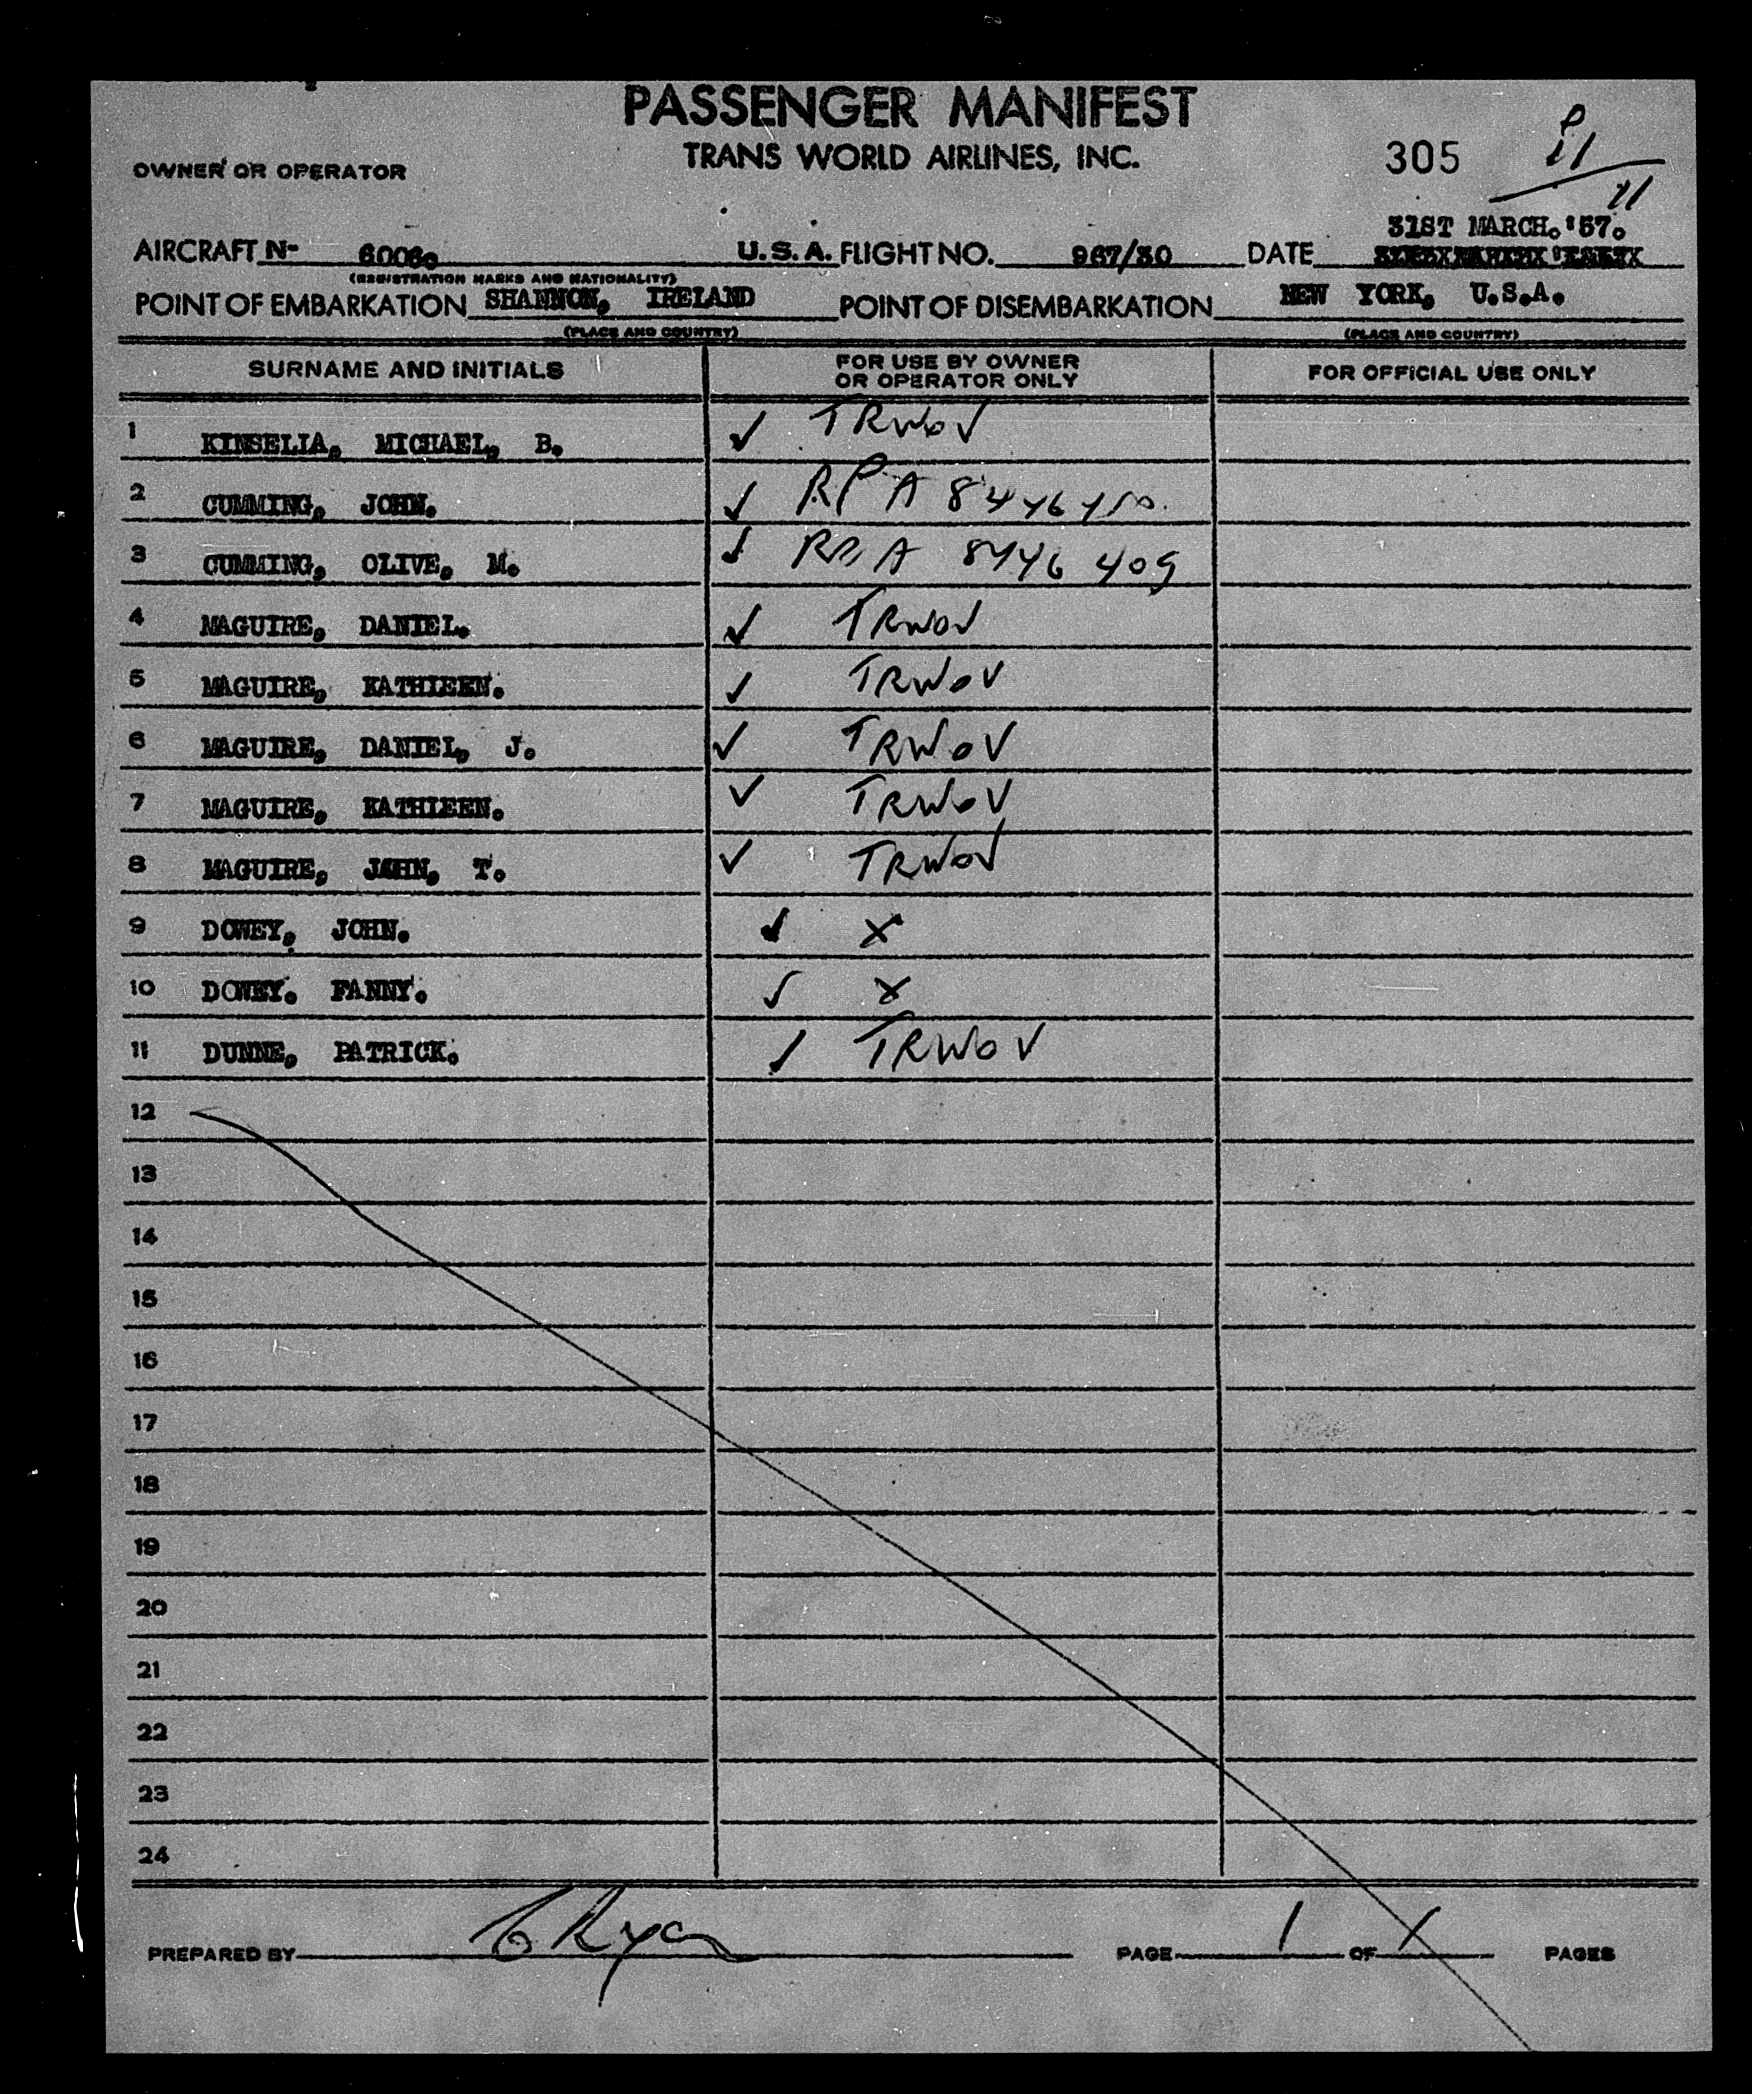 PASSENGER MANIFEST
TRANS WORLD AIRLINES, INC.
305
11
OWNER OR OPERATOR
31ST MARCH.'57.
AIRCRAFT N- 6006. U.S.A. FLIGHT NO. 967/30 DATE
(REGISTRATION MARKS AND NATIONALITY)
POINT OF EMBARKATION SHANNON, IRELAND POINT OF DISEMBARKATION NEW YORK, U.S.A.
(PLACE AND COUNTRY) (PLACE AND COUNTRY)
SURNAME AND INITIALS FOR USE BY OWNER OR OPERATOR ONLY FOR OFFICIAL USE ONLY
1 KINSELLA, MICHAEL, B. ✓ TRWOV
2 CUMMING, JOHN. ✓ RPA 8446450.
3 CUMMING, OLIVE, M. ✓ A 8446 409
4 MAGUIRE, DANIEL. ✓ TRWOV
5 MAGUIRE, KATHLEEN. ✓ TRWOV
6 MAGUIRE, DANIEL, J. ✓ TRWOV
7 MAGUIRE, KATHLEEN. ✓ TRWOV
8 MAGUIRE, JOHN, T. ✓ TRWOV
9 DOWEY, JOHN. ✓ X
10 DOWEY. FANNY. ✓ X
11 DUNNE, PATRICK. ✓ TRWOV
12
13
14
15
16
17
18
19
20
21
22
23
24
PREPARED BY Ryan PAGE 1 OF 1 PAGES